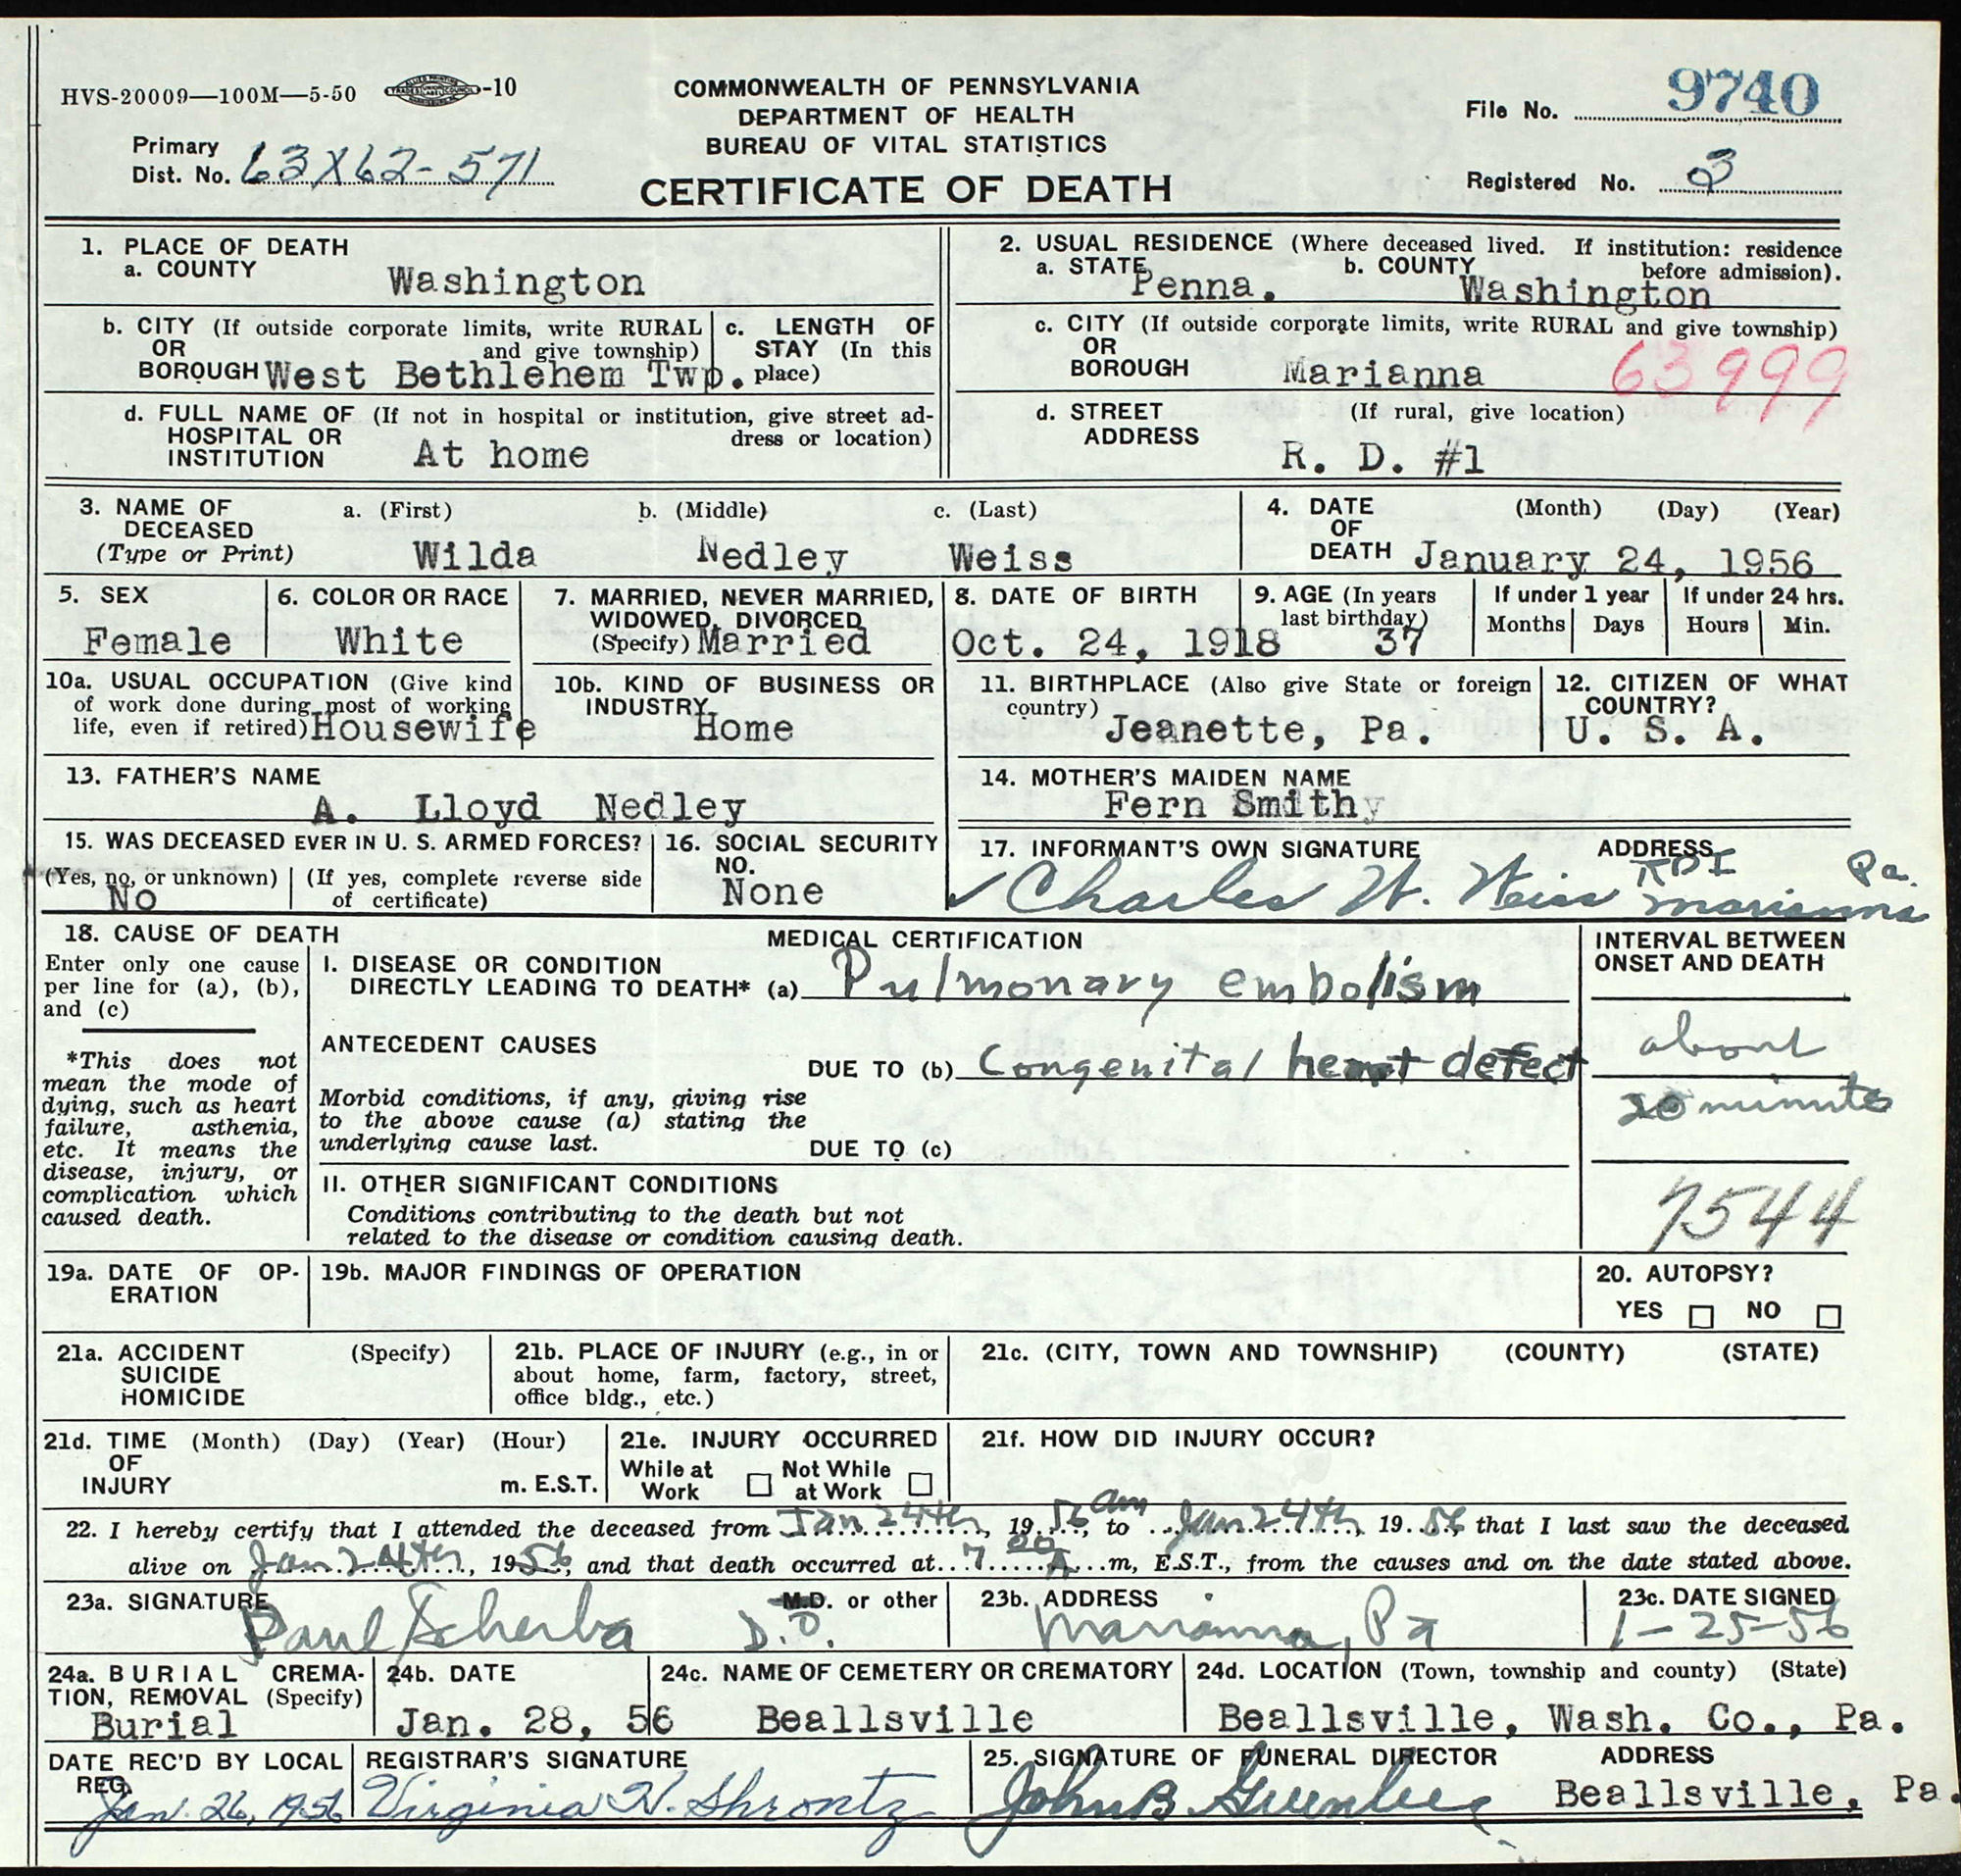 HVS-20009—100M—5-50 -10
COMMONWEALTH OF PENNSYLVANIA
DEPARTMENT OF HEALTH
BUREAU OF VITAL STATISTICS
CERTIFICATE OF DEATH
File No. 9740
Primary
Dist. No. 63X62-571
Registered No. 3
1. PLACE OF DEATH
a. COUNTY
Washington
2. USUAL RESIDENCE (Where deceased lived. If institution: residence
before admission).
a. STATE Penna. b. COUNTY Washington
b. CITY (If outside corporate limits, write RURAL
OR and give township)
BOROUGH West Bethlehem Twp.
c. LENGTH OF
STAY (In this
place)
c. CITY (If outside corporate limits, write RURAL and give township)
OR
BOROUGH Marianna 63999
d. FULL NAME OF (If not in hospital or institution, give street ad-
HOSPITAL OR dress or location)
INSTITUTION At home
d. STREET (If rural, give location)
ADDRESS
R. D. #1
3. NAME OF a. (First) b. (Middle) c. (Last)
DECEASED
(Type or Print) Wilda Nedley Weiss
4. DATE (Month) (Day) (Year)
OF
DEATH January 24, 1956
5. SEX
Female
6. COLOR OR RACE
White
7. MARRIED, NEVER MARRIED,
WIDOWED, DIVORCED
(Specify) Married
8. DATE OF BIRTH
Oct. 24, 1918
9. AGE (In years
last birthday)
37
If under 1 year
Months Days
If under 24 hrs.
Hours Min.
10a. USUAL OCCUPATION (Give kind
of work done during most of working
life, even if retired) Housewife
10b. KIND OF BUSINESS OR
INDUSTRY
Home
11. BIRTHPLACE (Also give State or foreign
country)
Jeanette, Pa.
12. CITIZEN OF WHAT
COUNTRY?
U. S. A.
13. FATHER'S NAME
A. Lloyd Nedley
14. MOTHER'S MAIDEN NAME
Fern Smithy
15. WAS DECEASED EVER IN U. S. ARMED FORCES?
(Yes, no, or unknown) (If yes, complete reverse side
of certificate)
No
16. SOCIAL SECURITY
NO.
None
17. INFORMANT'S OWN SIGNATURE ADDRESS
Charles W. Weiss RD1 Marianna Pa.
18. CAUSE OF DEATH
Enter only one cause
per line for (a), (b),
and (c)
*This does not
mean the mode of
dying, such as heart
failure, asthenia,
etc. It means the
disease, injury, or
complication which
caused death.
MEDICAL CERTIFICATION
I. DISEASE OR CONDITION
DIRECTLY LEADING TO DEATH* (a) Pulmonary embolism
ANTECEDENT CAUSES
DUE TO (b) Congenital heart defect
Morbid conditions, if any, giving rise
to the above cause (a) stating the
underlying cause last.
DUE TO (c)
II. OTHER SIGNIFICANT CONDITIONS
Conditions contributing to the death but not
related to the disease or condition causing death.
INTERVAL BETWEEN
ONSET AND DEATH
about
20 minutes
7544
19a. DATE OF OP-
ERATION
19b. MAJOR FINDINGS OF OPERATION
20. AUTOPSY?
YES NO
21a. ACCIDENT (Specify)
SUICIDE
HOMICIDE
21b. PLACE OF INJURY (e.g., in or
about home, farm, factory, street,
office bldg., etc.)
21c. (CITY, TOWN AND TOWNSHIP) (COUNTY) (STATE)
21d. TIME (Month) (Day) (Year) (Hour)
OF
INJURY m. E.S.T.
21e. INJURY OCCURRED
While at Not While
Work at Work
21f. HOW DID INJURY OCCUR?
22. I hereby certify that I attended the deceased from Jan 24th, 1956 am to Jan 24th, 1956 that I last saw the deceased
alive on Jan 24th, 1956, and that death occurred at 7 00 A m, E.S.T., from the causes and on the date stated above.
23a. SIGNATURE M.D. or other
Paul Scherba D.O.
23b. ADDRESS
Marianna, Pa
23c. DATE SIGNED
1-25-56
24a. BURIAL CREMA-
TION, REMOVAL (Specify)
Burial
24b. DATE
Jan. 28, 56
24c. NAME OF CEMETERY OR CREMATORY
Beallsville
24d. LOCATION (Town, township and county) (State)
Beallsville, Wash. Co., Pa.
DATE REC'D BY LOCAL
REG.
Jan. 26, 1956
REGISTRAR'S SIGNATURE
Virginia H. Shrontz
25. SIGNATURE OF FUNERAL DIRECTOR ADDRESS
John B Greenlee Beallsville, Pa.